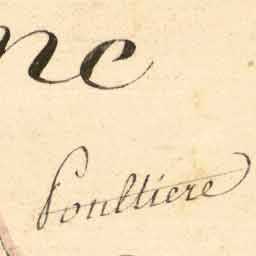 nc
Poultiere